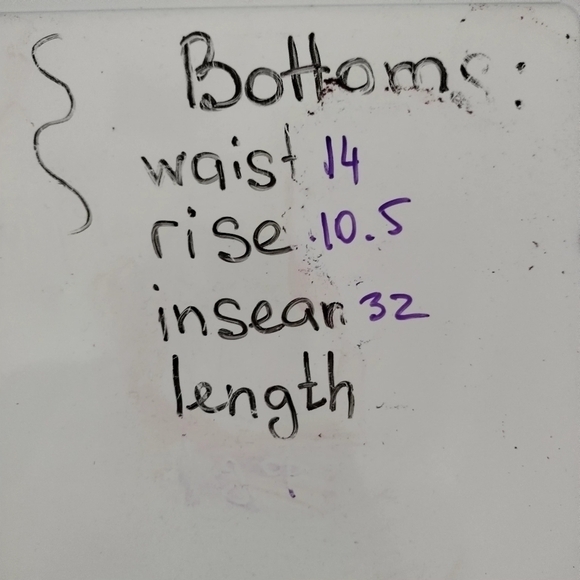 Bottoms:
waist 14
rise 10.5
inseam 32
length